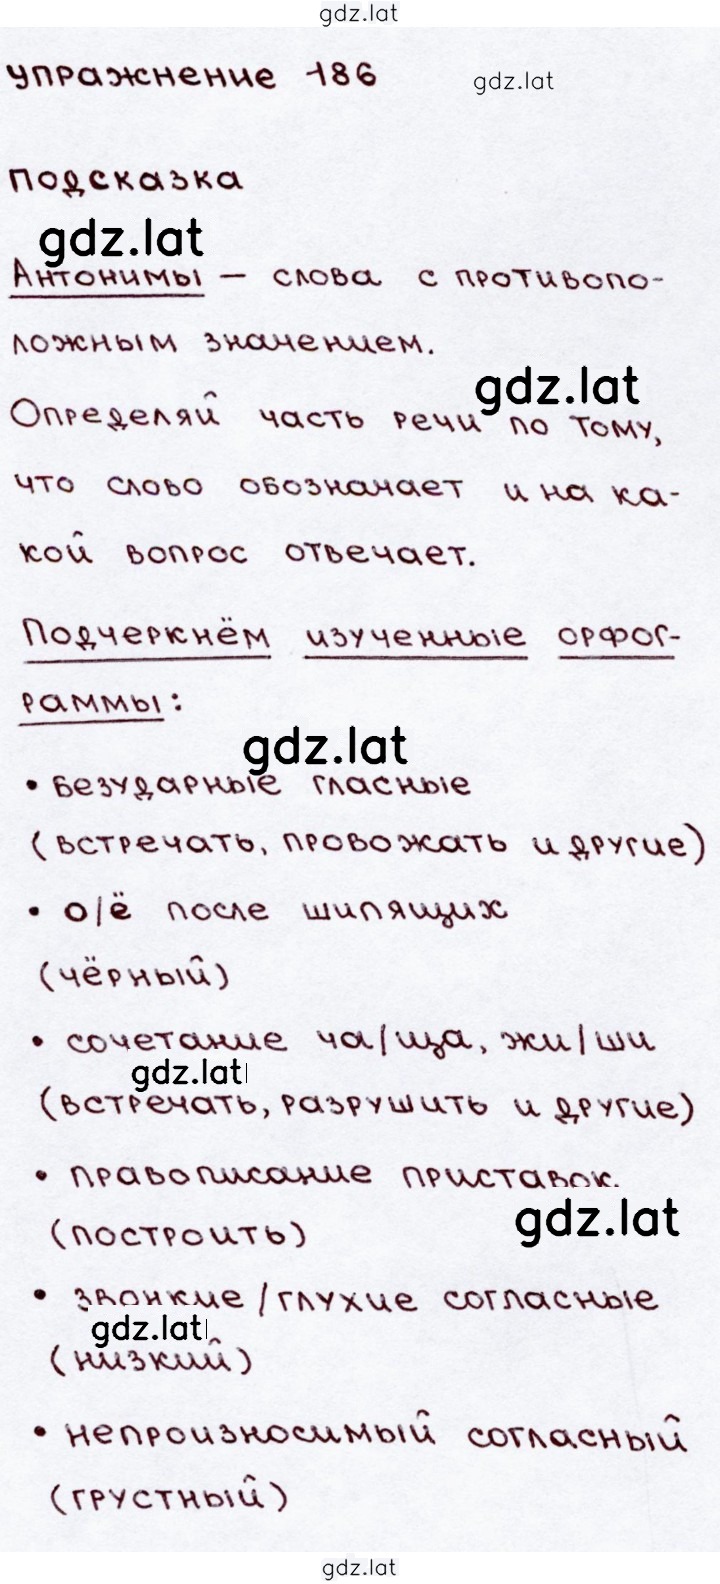 gdz.lat
упражнение 186
gdz.lat
подсказка
gdz.lat
Антонимы – слова с противопо-
ложным значением.
gdz.lat
Определяй часть речи по тому,
что слово обозначает и на ка-
кой вопрос отвечает.
Подчеркнём изученные орфог-
раммы:
gdz.lat
• безударные гласные
(встречать, провожать и другие)
• о/ё после шипящих
(чёрный)
• сочетание ча/ща, жи/ши
gdz.lat
(встречать, разрушить и другие)
• правописание приставок
gdz.lat
(построить)
• звонкие/глухие согласные
gdz.lat
(низкий)
• непроизносимый согласный
(грустный)
gdz.lat